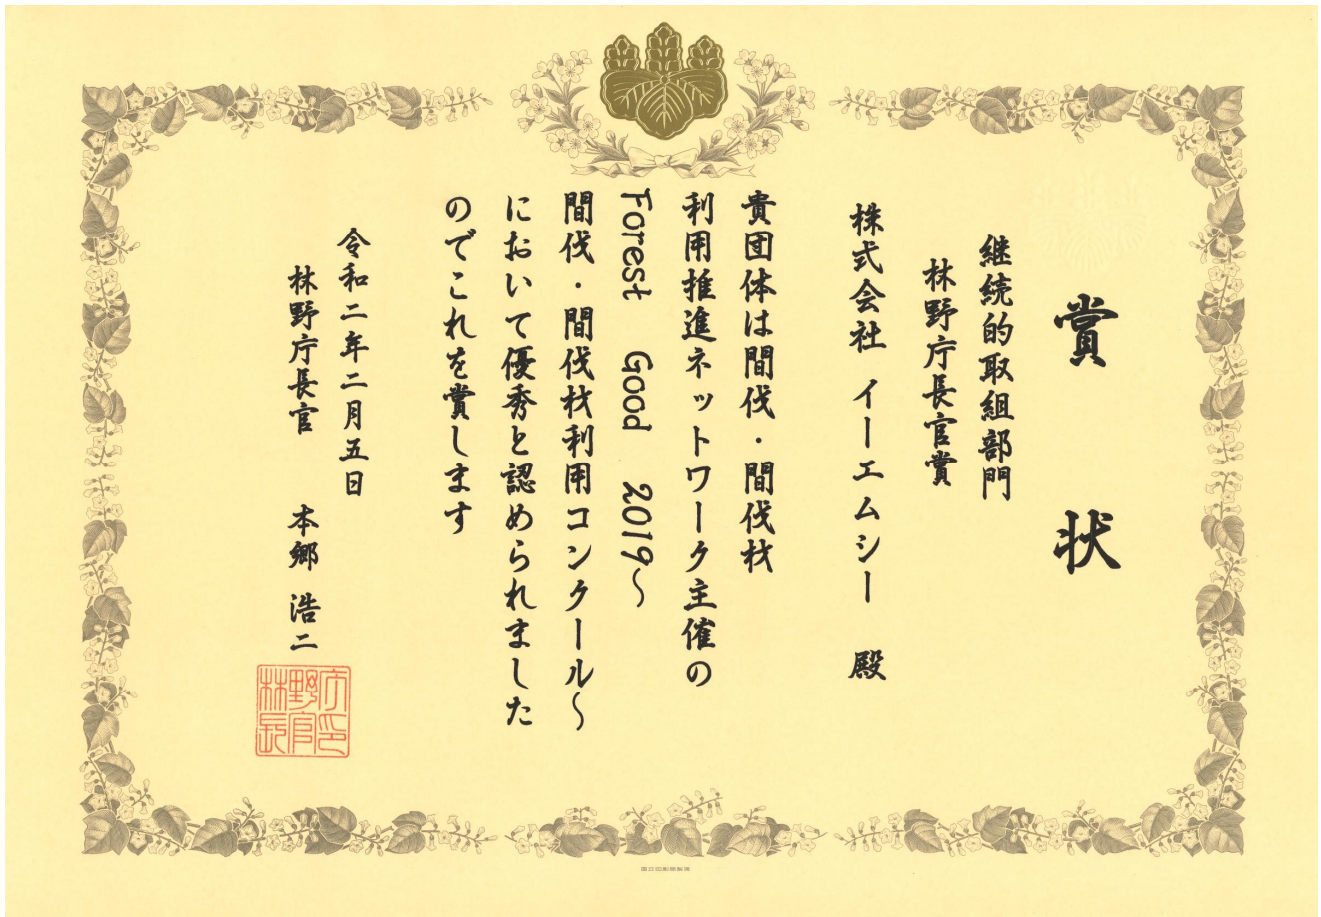 賞状
継続的取組部門
林野庁長官賞
株式会社 イーエムシー 殿
貴団体は間伐・間伐材
利用推進ネットワーク主催の
Forest Good 2019〜
間伐・間伐材利用コンクール〜
において優秀と認められました
のでこれを賞します
令和二年二月五日
林野庁長官 本郷 浩二
林野庁長官印